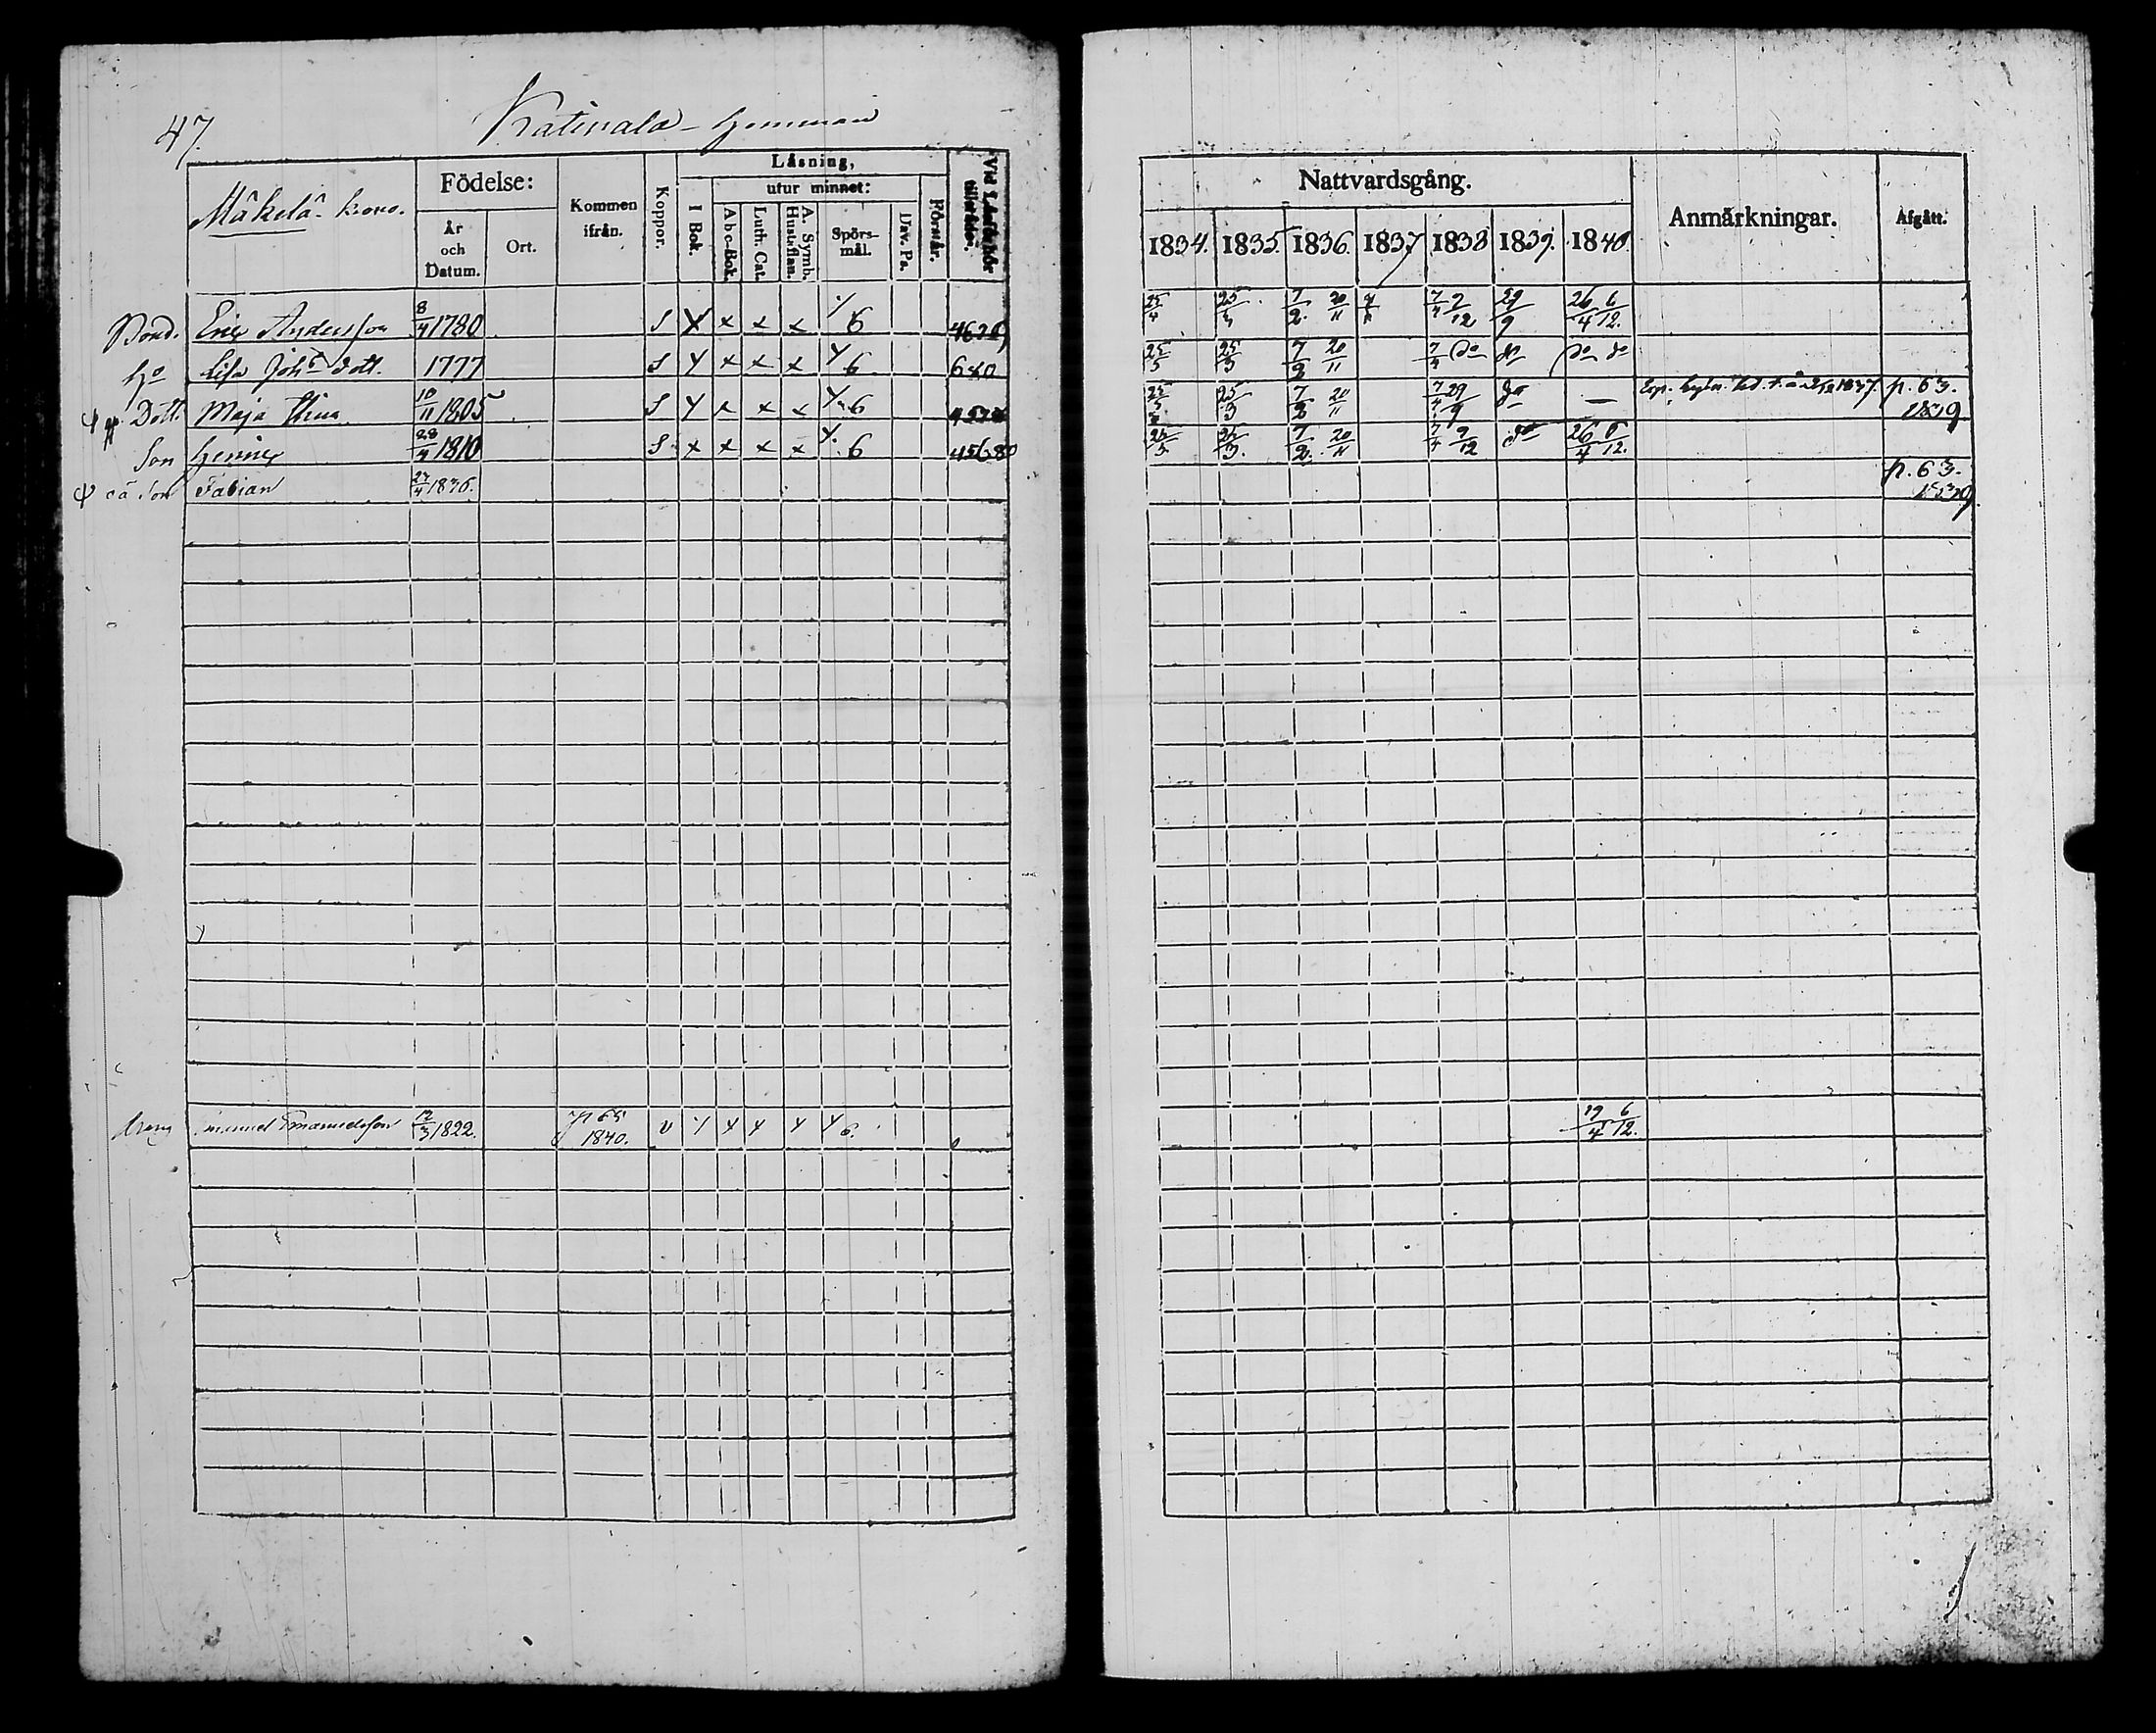 47.
Katinala
Mäkelä krono.
Födelse:
År och Datum.
Ort.
Kommen ifrån.
Koppor.
Läsning,
utur minnet:
I Bok.
Abc-Bok.
Luth. Cat.
A. Symb. Hust.taflan.
Spörsmål.
Dav. Ps.
Förstår.
Vid Läseförhör tillstädes.
Bond. Eric Andersson 8/4 1780 S 6
Lisa Joh: dott. 1777 S 6 680
Dott. Maja Stina 10/11 1805 S 6
Son Henric 28/4 1810 S 6 45680
oä Son Fabian 27/4 1836.
dreng Emanuel Emanuelsson 12/3 1822. p 65 1840. v 6.
Nattvardsgång.
1834. 1835. 1836. 1837 1838 1839. 1840.
Anmärkningar.
Afgått.
25/4 25/3 7/2 20/11 7/4 2/12 29/9 26/4 6/12.
25/3 25/3 7/2 20/11 7/4 do do do do
25/3 25/3 7/2 20/11 7/4 29/9 do — 1837. p. 63. 1839
25/3 25/3. 7/2 20/11 7/4 2/12 do 26/4 6/12.
p. 63. 1839
19/4 6/12.